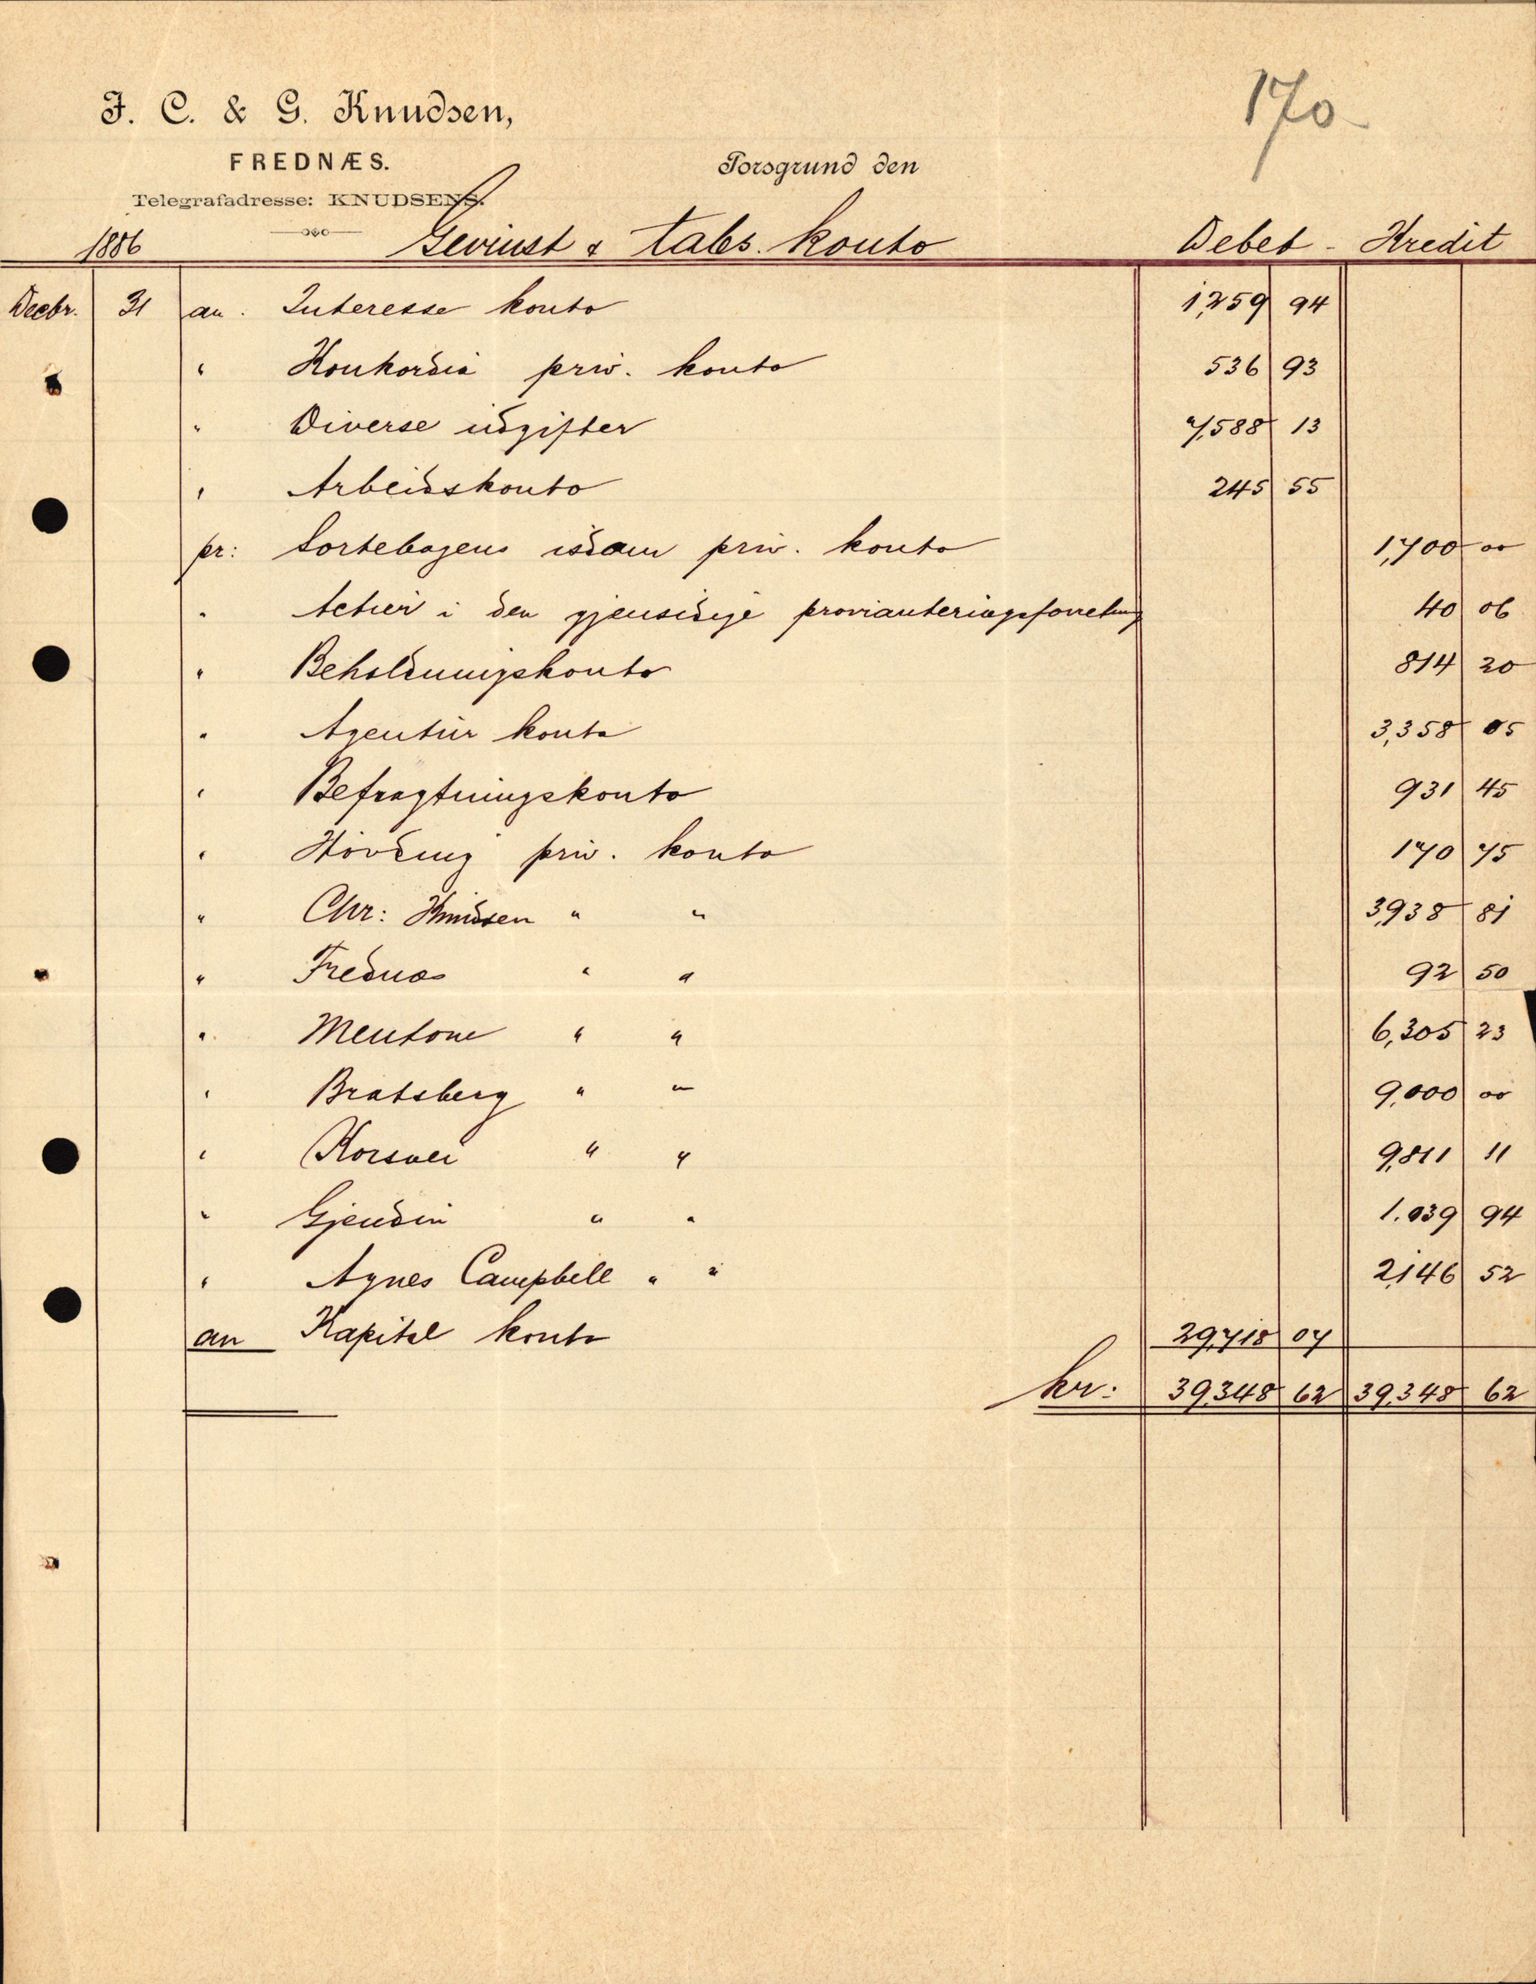 170
J. C. & G. Knudsen,
FREDNÆS.
Porsgrund den
Telegrafadresse: KNUDSENS.
1886 Gevinst & tabs. konto Debet - Kredit
Decbr. 31 an. Interesse konto 1,259 94
" Konkordia priv. konto 536 93
" Diverse udgifter 7,588 13
" Arbeidskonto 245 55
pr: Sortebogens isdam priv. konto 1,700 00
" Actier i den gjensidige provianteringsforretning 40 06
" Beholdningskonto 814 20
" Agentur konto 3,358 05
" Befragtningskonto 931 45
" Høvding priv. konto 170 75
" Chr: Knudsen " " 3,938 81
" Frednæs " " 92 50
" Mentone " " 6,305 23
" Bratsberg " " 9,000 00
" Korsvei " " 9,811 11
" Gjendin " " 1.039 94
" Agnes Campbell " " 2,146 52
an Kapital konto 29,718 07
kr: 39,348 62 39,348 62